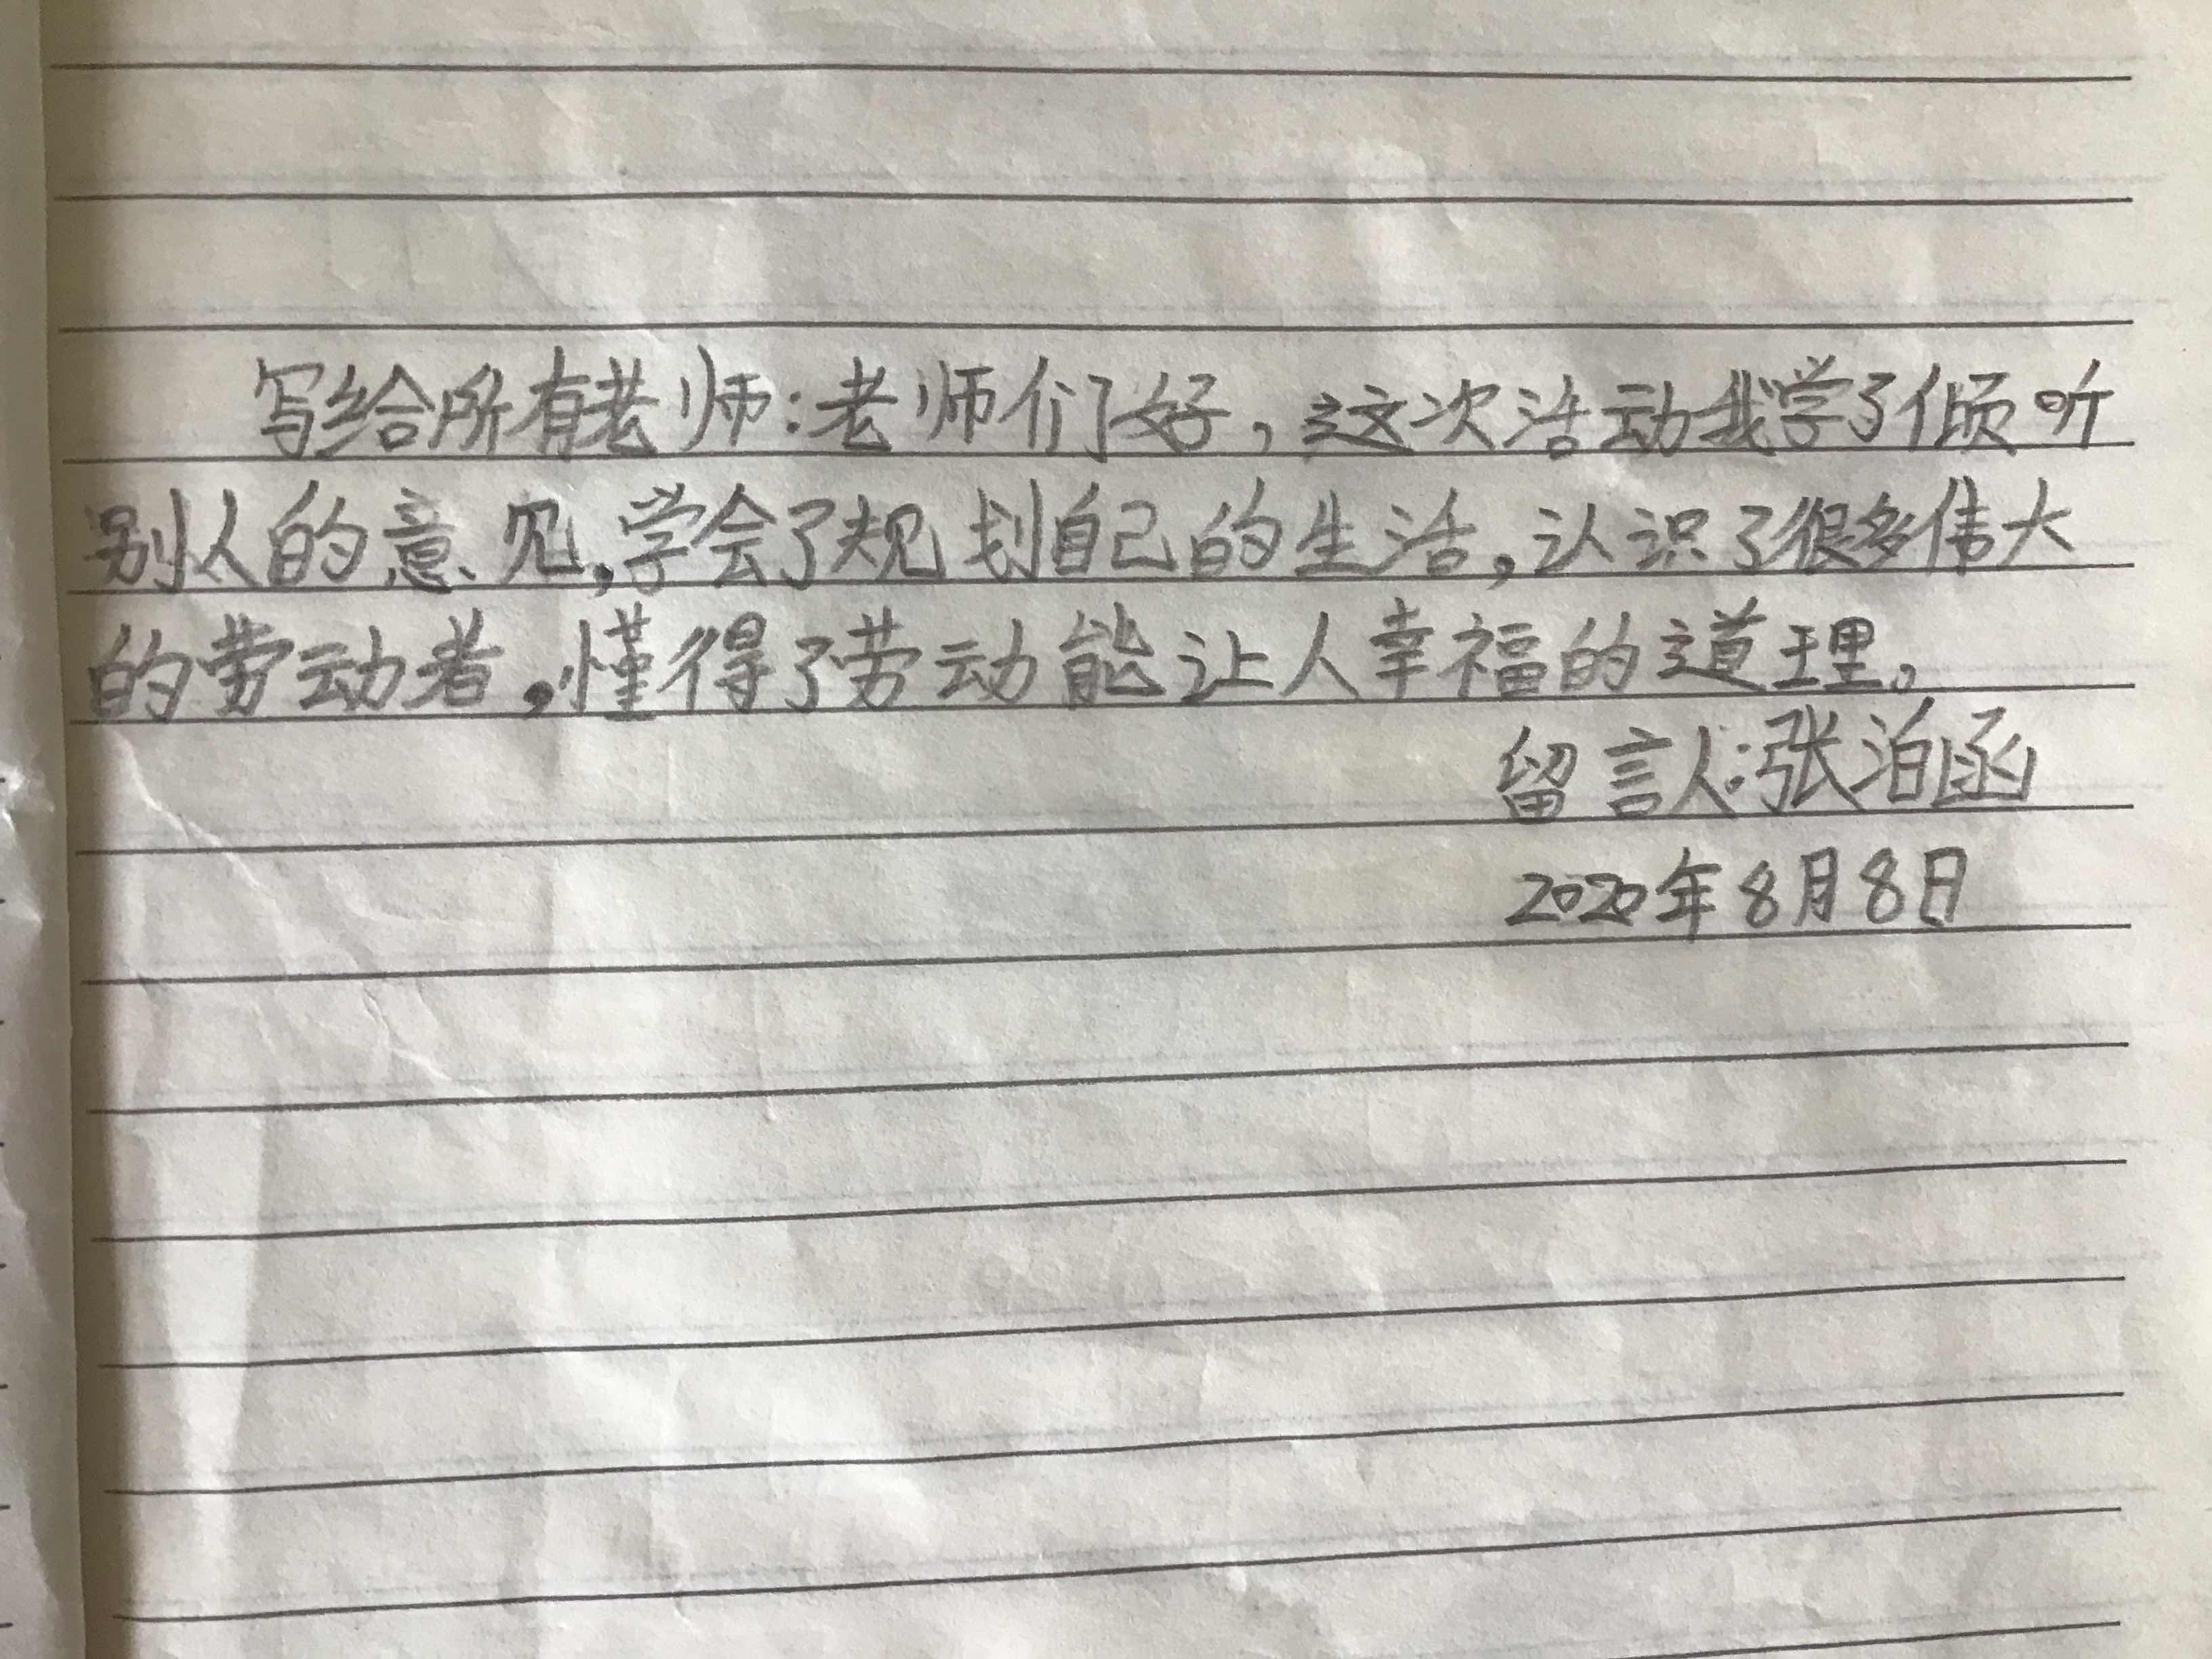 写给所有老师：老师们好，这次活动我学了倾听
别人的意见，学会了规划自己的生活，认识了很多伟大
的劳动者，懂得了劳动能让人幸福的道理。
留言人：张泊函
2020年8月8日